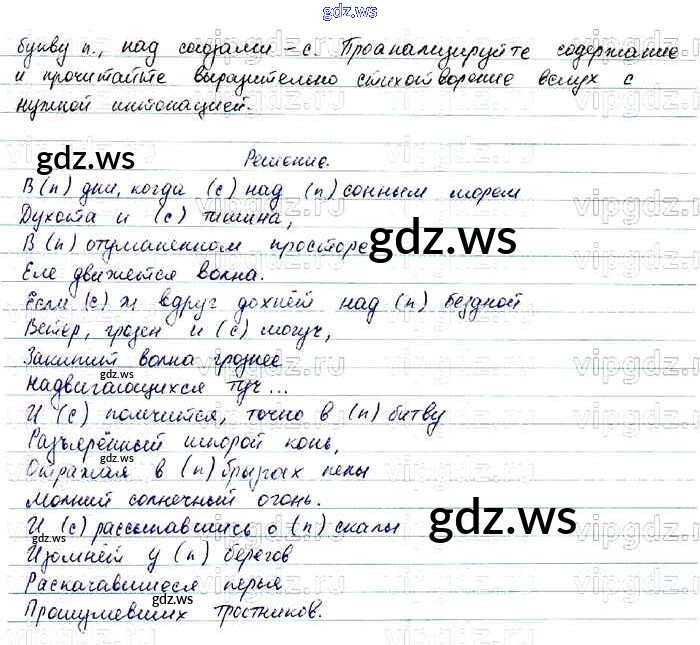 gdz.ws
букву п., над союзами – с. Проанализируйте содержание
и прочитайте выразительно стихотворение вслух с
нужной интонацией.
gdz.ws
Решение.
В (п) дни, когда (с) над (п) сонным морем
Духота и (с) тишина,
В (п) отуманенном просторе
gdz.ws
Еле движется волна.
Если (с) ж вдруг дохнёт над (п) бездной
Ветер, грозен и (с) могуч,
Закипит волна грознее
Надвигающихся туч...
gdz.ws
И (с) помчится, точно в (п) битву
Разъярённый шпорой конь,
Отражая в (п) брызгах пены
gdz.ws
Молний солнечный огонь.
И (с) рассыпавшись о (п) скалы
gdz.ws
gdz.ws
Изомнёт у (п) берегов
Раскачавшиеся перья
gdz.ws
Прошумевших тростников.
vipgdz.ru